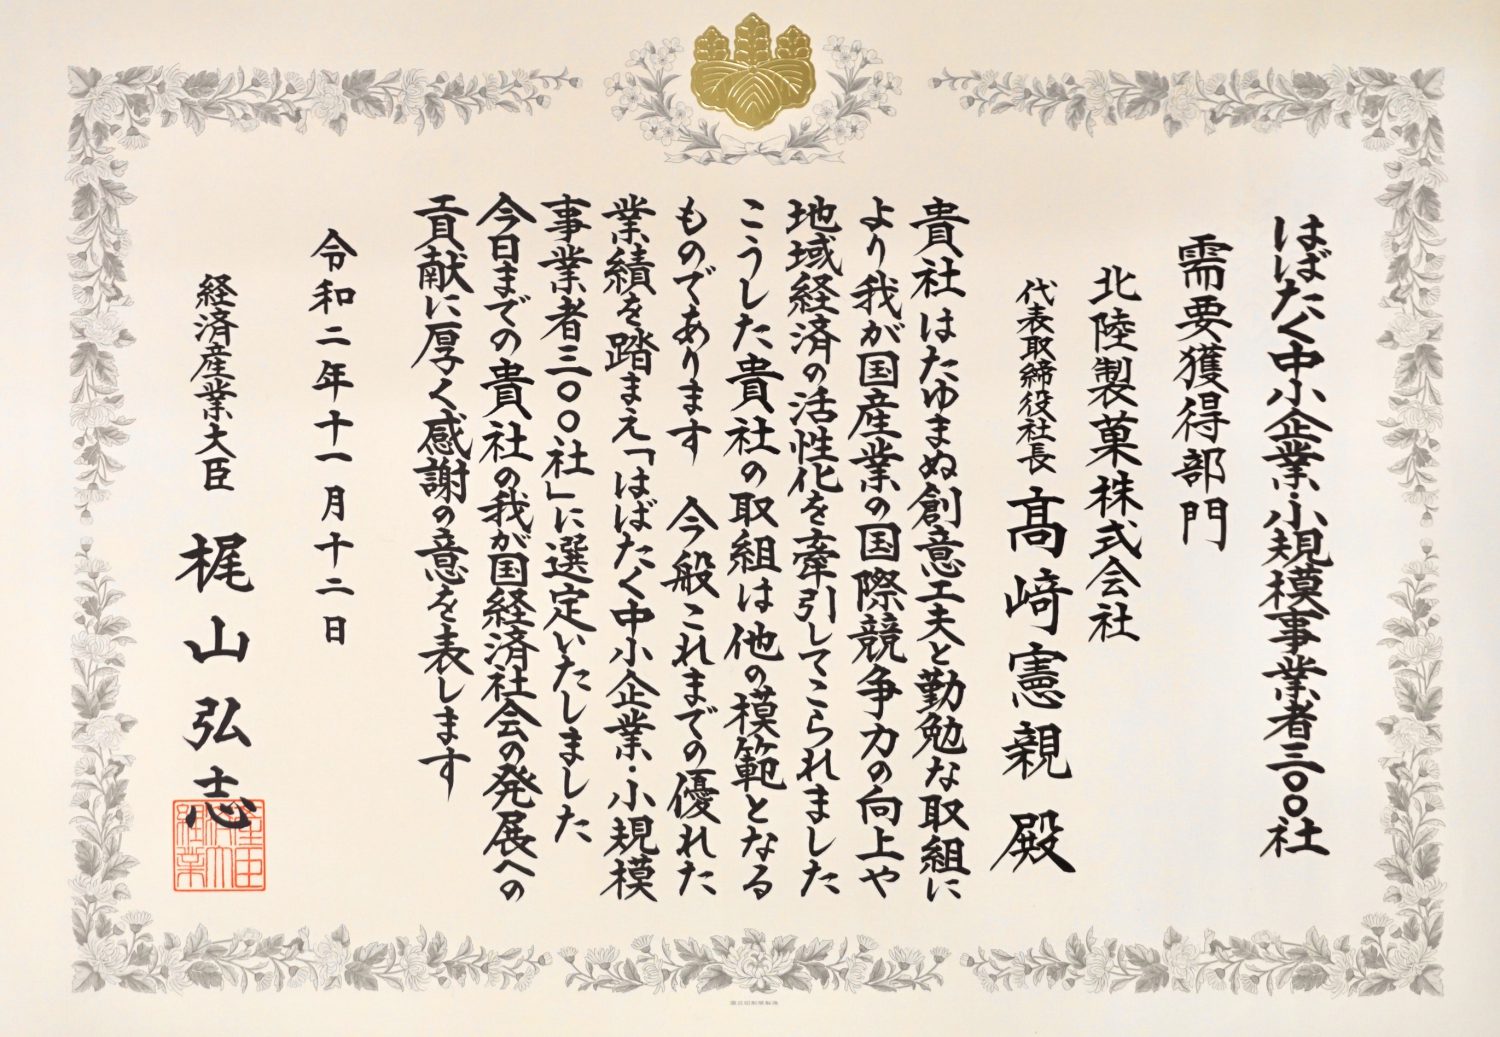 はばたく中小企業・小規模事業者三〇〇社
需要獲得部門
北陸製菓株式会社
代表取締役社長 髙﨑憲親殿
貴社はたゆまぬ創意工夫と勤勉な取組に
より我が国産業の国際競争力の向上や
地域経済の活性化を牽引してこられました
こうした貴社の取組は他の模範となる
ものであります 今般これまでの優れた
業績を踏まえ「はばたく中小企業・小規模
事業者三〇〇社」に選定いたしました
今日までの貴社の我が国経済社会の発展への
貢献に厚く感謝の意を表します
令和二年十一月十二日
経済産業大臣 梶山弘志